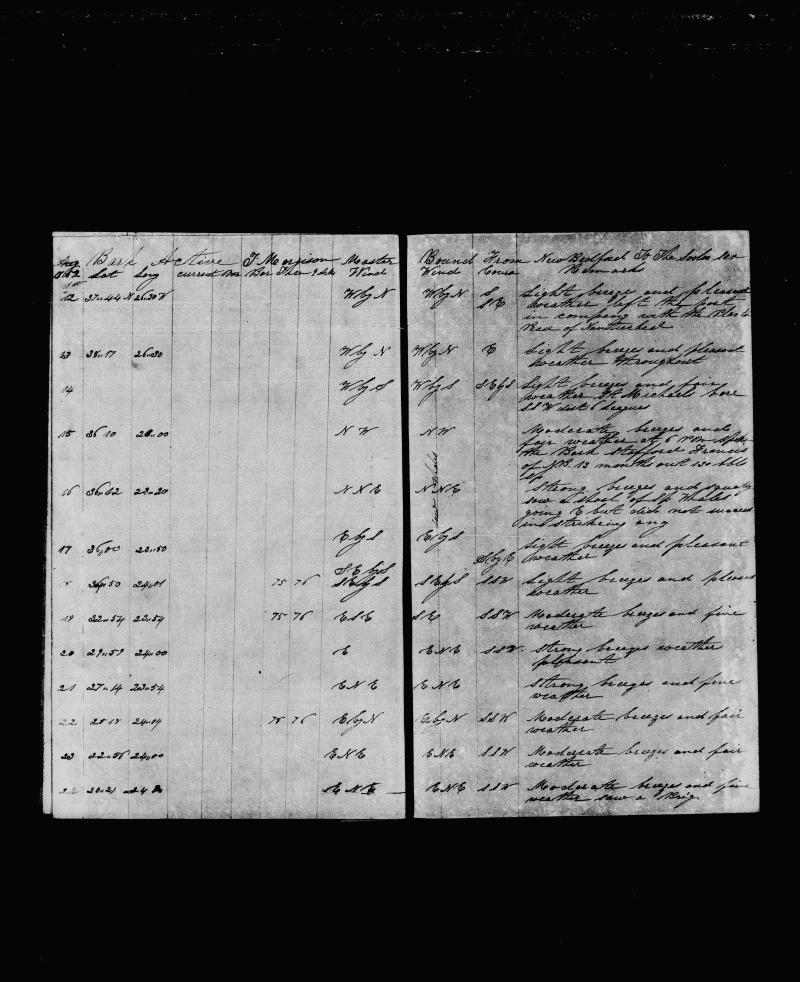 Aug Bark Active T Morrison Master Bound From New Bedford To The
1842 Lat Long current Bar Ther Wind Wind Cours Remarks
12 37..44 N 26.30 W W by N W by N S Light breeze and pleasant
S E weather left the port
in company with the
of Nantucket
13 38..17 26..30 W by N W by N E Light breeze and pleasant
weather throughout
14 W by S W by S S E by S Light breezes and fair
weather St Michaels bore
S S W dist 6 leagues
15 36 10 N W N W Moderate breezes and
fair weather at 6 P M
the Bark Stafford Francis
of N.B. 13 months out 130 bbls
Sp
saw whales
16 36..12 23..20 N N E N N E Strong breezes and squally
saw a shoal of Sp Whales
going E but did not succeed
in striking any
17 36,,00 E by S E by S Light breezes and pleasant
S by E weather
S E by S
24..01 75 76 S E by S S E by S S S W Light breezes and pleasant
weather
19 32..54 23..54 75-76 E S E S E S S W Moderate breezes and fine
weather
20 29..59 24..00 E E N E S S W Strong breezes weather
pleasant
21 27..14 23..54 E N E E N E Strong breezes and fine
weather
22 25 18 24..04 75 76 E by N E by N S S W Moderate breezes and fair
weather
23 22..56 24..00 E N E E N E S S W Moderate breezes and fair
weather
24 20..21 E N E E N E S S W Moderate breezes and fine
weather saw a Brig